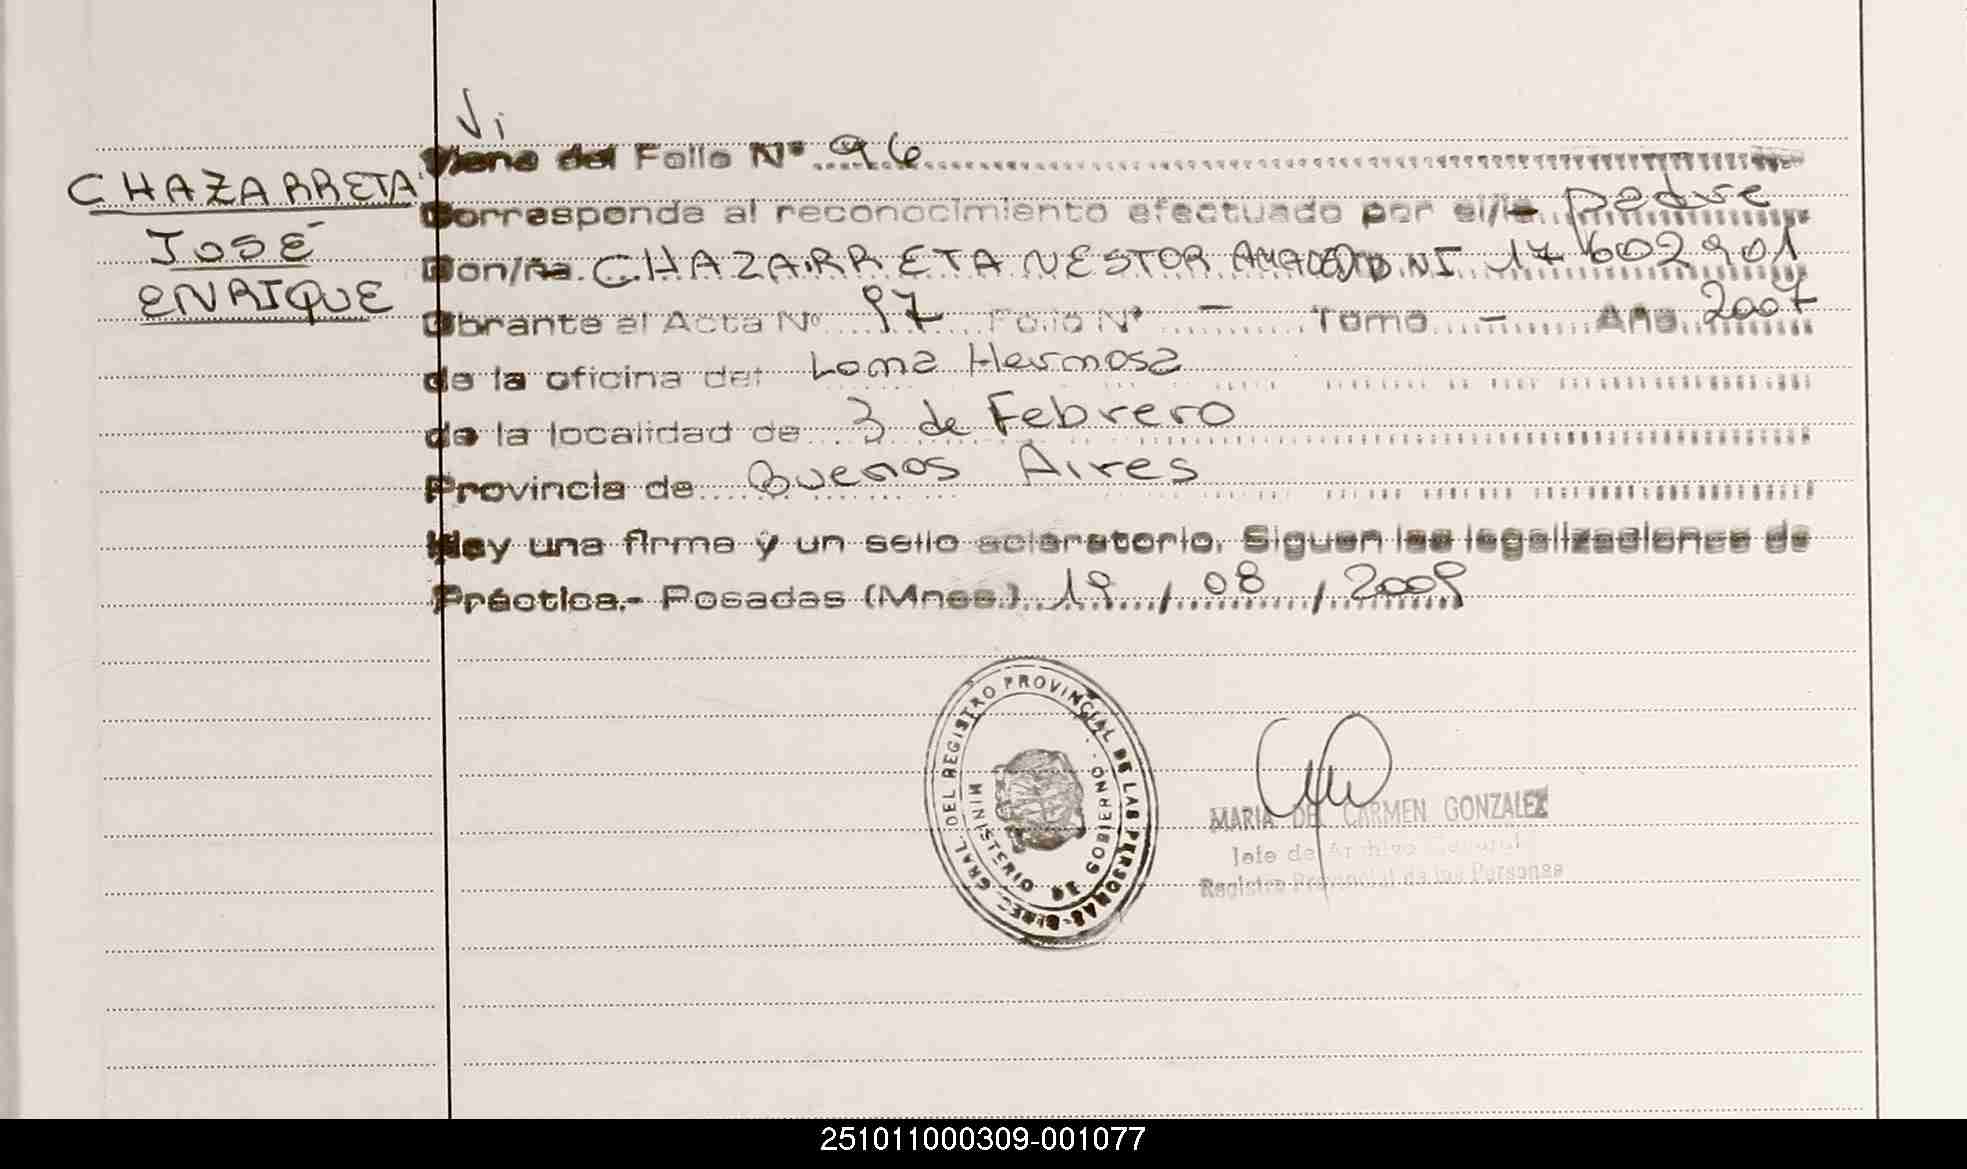 Vi
Viene del Folio Nº 96
CHAZARRETA
Corresponde al reconocimiento efectuado por el/la padre
JOSÉ
Don/ña. CHAZARRETA NESTOR AMADEO D.N.I. 17602901
ENRIQUE
Obrante al Acta Nº 97 Folio Nº - Tomo - Año 2007
de la oficina del Loma Hermosa
de la localidad de 3 de Febrero
Provincia de Buenos Aires
Hay una firma y un sello aclaratorio. Siguen las legalizaciones de
Práctica.- Posadas (Mnes.) 19 / 08 / 2009
DIREC. GRAL. DEL REGISTRO PROVINCIAL DE LAS PERSONAS
MINISTERIO DE GOBIERNO
MARIA DEL CARMEN GONZALEZ
Jefe de Archivo General
Registro Provincial de las Personas
251011000309-001077